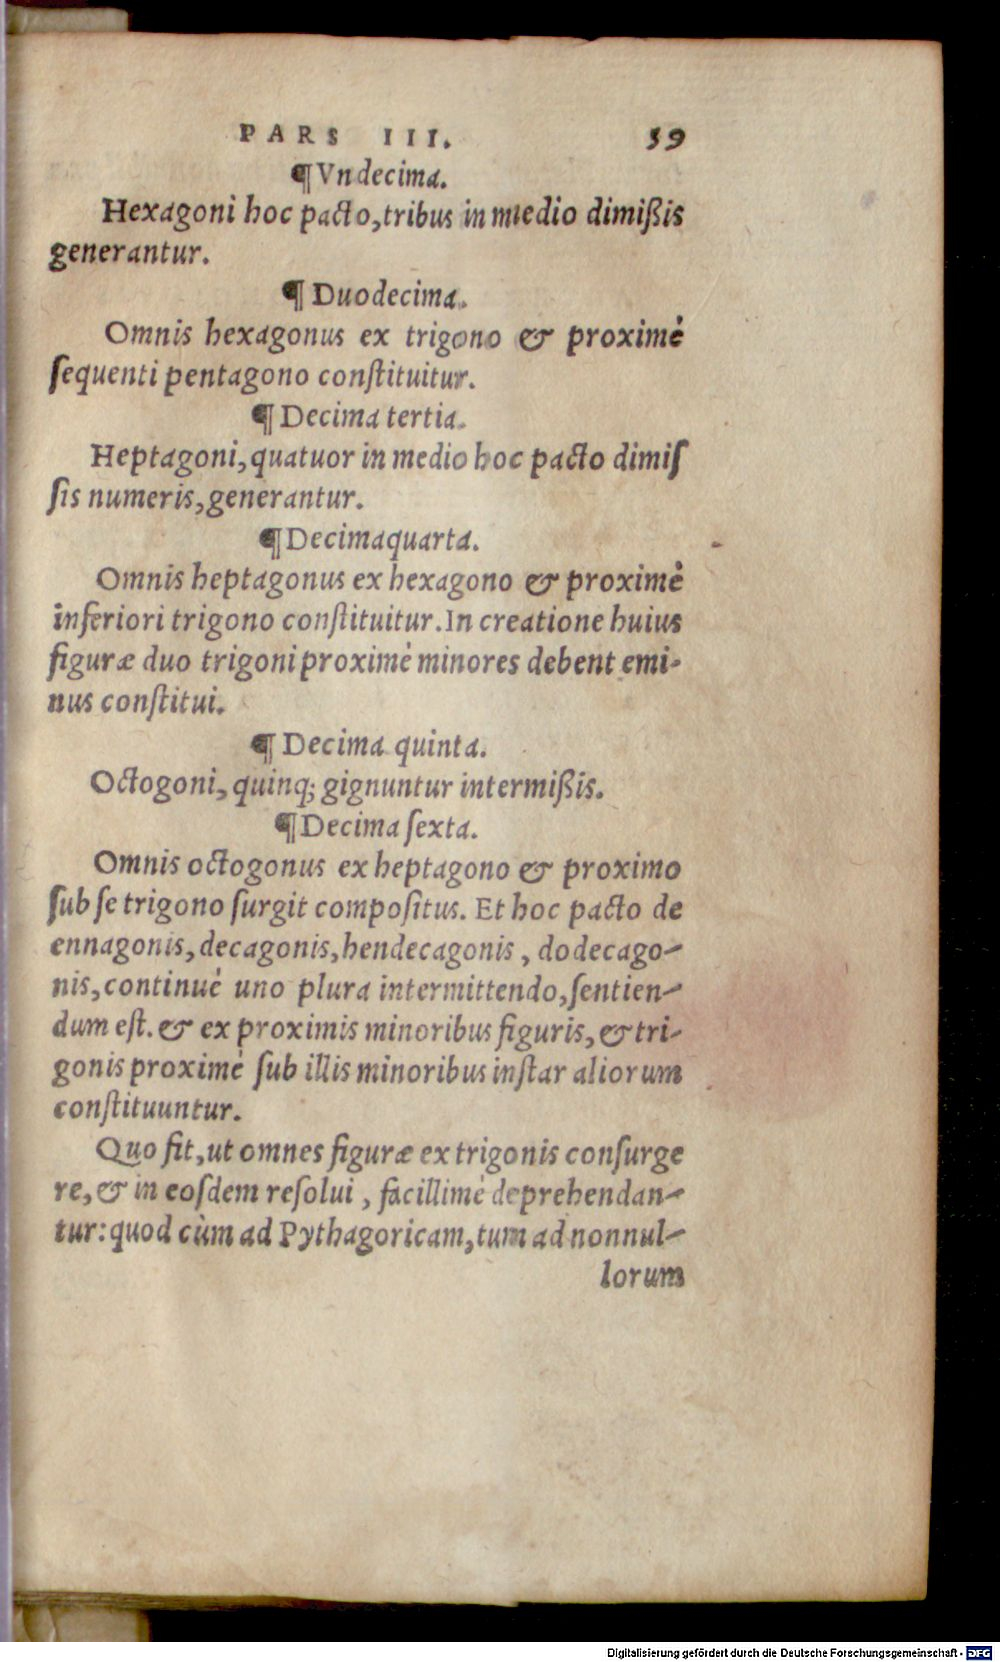 PARS III. 59
¶ Vndecima.
Hexagoni hoc pacto, tribus in medio dimißis
generantur.
¶ Duodecima.
Omnis hexagonus ex trigono & proximè
ſequenti pentagono conſtituitur.
¶ Decima tertia.
Heptagoni, quatuor in medio hoc pacto dimiſ
ſis numeris, generantur.
¶ Decimaquarta.
Omnis heptagonus ex hexagono & proximè
inferiori trigono conſtituitur. In creatione huius
figuræ duo trigoni proximè minores debent emi-
nus conſtitui.
¶ Decima quinta.
Octogoni, quinq; gignuntur intermißis.
¶ Decima ſexta.
Omnis octogonus ex heptagono & proximo
ſub ſe trigono ſurgit compoſitus. Et hoc pacto de
ennagonis, decagonis, hendecagonis, dodecago-
nis, continuè uno plura intermittendo, ſentien-
dum eſt. & ex proximis minoribus figuris, & tri-
gonis proximè ſub illis minoribus inſtar aliorum
conſtituuntur.
Quo fit, ut omnes figuræ ex trigonis conſurge
re, & in eoſdem reſolui, facillimè deprehendan-
tur: quod cùm ad Pythagoricam, tum ad nonnul-
lorum
Digitalisierung gefördert durch die Deutsche Forschungsgemeinschaft - DFG